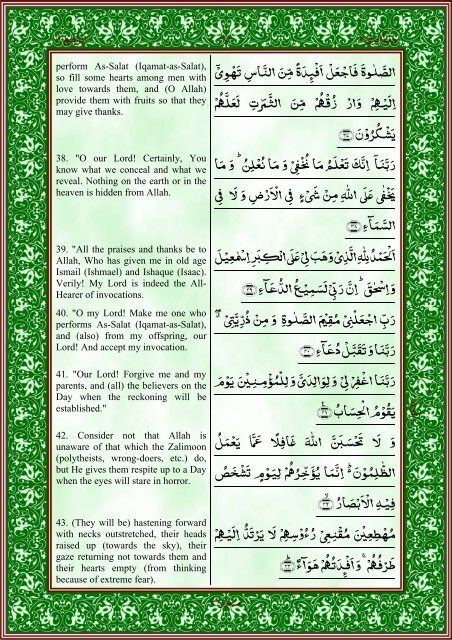 perform As-Salat (Iqamat-as-Salat),
so fill some hearts among men with
love towards them, and (O Allah)
provide them with fruits so that they
may give thanks.
الصَّلٰوةَ فَاجْعَلْ اَفْـِٕدَةً مِّنَ النَّاسِ تَهْوِيْٓ
اِلَيْهِمْ وَارْ زُقْهُمْ مِّنَ الثَّمَرٰتِ لَعَلَّهُمْ
يَشْكُرُوْنَ
38. "O our Lord! Certainly, You
know what we conceal and what we
reveal. Nothing on the earth or in the
heaven is hidden from Allah.
رَبَّنَآ اِنَّكَ تَعْلَمُ مَا نُخْفِيْ وَ مَا نُعْلِنُ ؕ وَ مَا
يَخْفٰى عَلَى اللّٰهِ مِنْ شَيْءٍ فِي الْاَرْضِ وَ لَا فِي
السَّمَآءِ
39. "All the praises and thanks be to
Allah, Who has given me in old age
Ismail (Ishmael) and Ishaque (Isaac).
Verily! My Lord is indeed the All-
Hearer of invocations.
اَلْحَمْدُ لِلّٰهِ الَّذِيْ وَهَبَ لِيْ عَلَى الْكِبَرِ اِسْمٰعِيْلَ
وَ اِسْحٰقَ ؕ اِنَّ رَبِّيْ لَسَمِيْعُ الدُّعَآءِ
40. "O my Lord! Make me one who
performs As-Salat (Iqamat-as-Salat),
and (also) from my offspring, our
Lord! And accept my invocation.
رَبِّ اجْعَلْنِيْ مُقِيْمَ الصَّلٰوةِ وَ مِنْ ذُرِّيَّتِيْ
رَبَّنَا وَ تَقَبَّلْ دُعَآءِ
41. "Our Lord! Forgive me and my
parents, and (all) the believers on the
Day when the reckoning will be
established."
رَبَّنَا اغْفِرْ لِيْ وَ لِوَالِدَيَّ وَ لِلْمُؤْمِنِيْنَ يَوْمَ
يَقُوْمُ الْحِسَابُ
42. Consider not that Allah is
unaware of that which the Zalimoon
(polytheists, wrong-doers, etc.) do,
but He gives them respite up to a Day
when the eyes will stare in horror.
وَ لَا تَحْسَبَنَّ اللّٰهَ غَافِلًا عَمَّا يَعْمَلُ
الظّٰلِمُوْنَ ؕ اِنَّمَا يُؤَخِّرُهُمْ لِيَوْمٍ تَشْخَصُ
فِيْهِ الْاَبْصَارُ
43. (They will be) hastening forward
with necks outstretched, their heads
raised up (towards the sky), their
gaze returning not towards them and
their hearts empty (from thinking
because of extreme fear).
مُهْطِعِيْنَ مُقْنِعِيْ رُءُوْسِهِمْ لَا يَرْتَدُّ اِلَيْهِمْ
طَرْفُهُمْ ۚ وَ اَفْـِٕدَتُهُمْ هَوَآءٌ